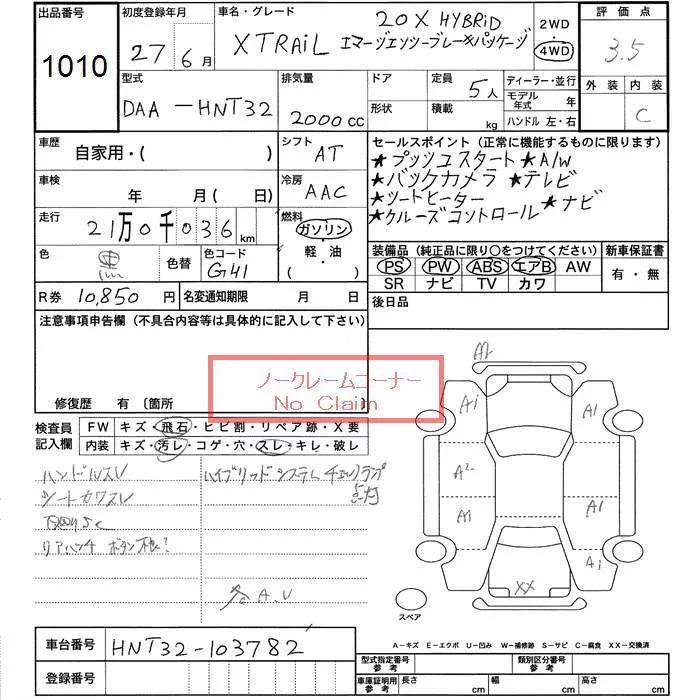 出品番号 初度登録年月 車名・グレード 評価点
1010
27 6月
XTRAiL 20X HYBRiD
エマージェンシーブレーキパッケージ
2WD・4WD
3.5
型式 排気量 ドア 定員 5人 ディーラー・並行
外装 内装
DAA-HNT32 2000cc 形状 積載 kg
モデル年式 年
ハンドル 左・右
C
車歴 自家用・( )
シフト AT
セールスポイント（正常に機能するものに限ります）
★プッシュスタート★A/W
★バックカメラ ★テレビ
★シートヒーター ★ナビ
★クルーズコントロール
車検 年 月( 日)
冷房 AAC
走行 21万0千036km
燃料 ガソリン・軽・油 ( )
色 黒 色替 色コード G41
装備品（純正品に限り○をつけてください） 新車保証書
PS PW ABS エアB AW
SR ナビ TV カワ
有・無
R券 10,850円 名変通知期限 月 日
後日品
注意事項申告欄（不具合内容等は具体的に記入して下さい）
ノークレームコーナー
No Claim
修復歴 有〔箇所
検査員記入欄
FW キズ・飛石・ヒビ割・リペア跡・X要
内装 キズ・汚レ・コゲ・穴・スレ・キレ・破レ
ハンドルスレ
シートカワスレ
ハイブリッドシステムチェックランプ点灯
リアハッチ ボタン
各A.U
A2
A1 A1
A2
A1 A1
A1
XX
スペア
A-キズ E-エクボ U-凹み W-補修跡 S-サビ C-腐食 XX-交換済
車台番号 HNT32-103782
登録番号
型式指定番号 参考 類別区分番号 参考
車庫証明用 参考 長さ 幅 高さ